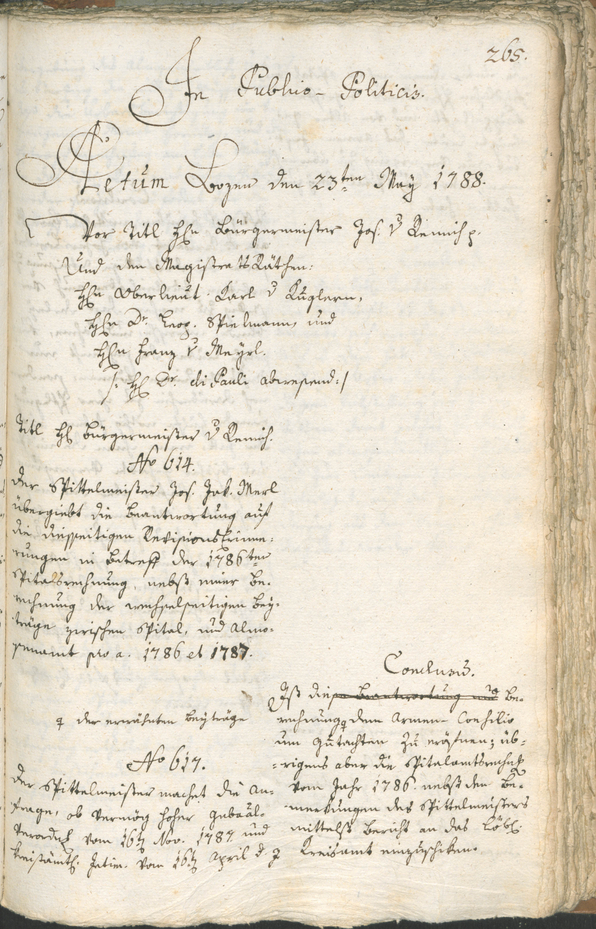 265.
In Publico-Politicis.
Actum Bozen den 23ten May 1788.
Vor Titl Hhn Bürgermeister Jos. v Remich p.
Und den Magistrats Räthen:
Hhn Oberlieut. Karl v Kuglern,
Hhn Dr. Leop. Spielmann, und
Hhn Franz v Mayrl.
/: Hh Dr. di Pauli aberepend :/
Titl Hh Bürgermeister v Remich.
No 614.
Der Spittelmeister Jos. Jak. Merl
übergiebt die Beantwortung auf
die diesseitigen Revisionserinne-
rungen in Betreff der 1786ten
Spitalsrechnung, nebst einer Be-
rechnung der wechselseitigen Bey-
träge zwischen Spital, und Almo-
senamt pro a. 1786 et 1787.
Conclusum.
Ist diese Beantwortung und Be-
rechnung dem Armen Consilio
um Gutachten zu eröfnen; üb-
rigens aber die Spitalamtsrechnung
vom Jahr 1786 nebst den Be-
merkungen des Spittelmeisters
mittelst Bericht an das Löbl.
Kreisamt einzuschiken.
der erwähnten Beyträge
No 617.
Der Spittelmeister machet die An-
frage, ob vermög hoher Gubernial-
Verordng vom 16ten Nov. 1787 und
kreisämtl. Intim. vom 16ten April d J